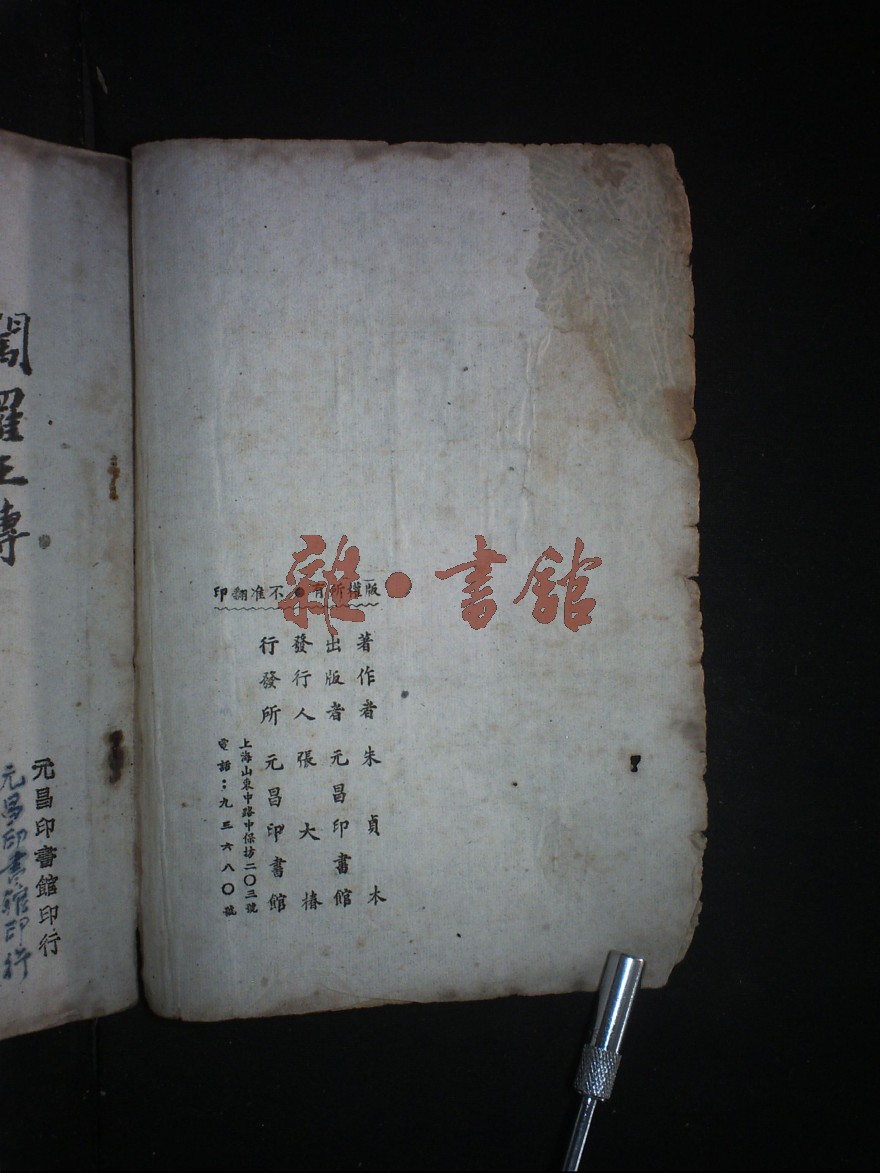 版權所有●不准翻印
著作者 朱貞木
出版者 元昌印書館
發行人 張大椿
行發所 元昌印書館
上海山東中路中保坊二〇三號
電話：九三六八〇號
雜·書館
羅王傳
元昌印書館印行
元昌印書館印行